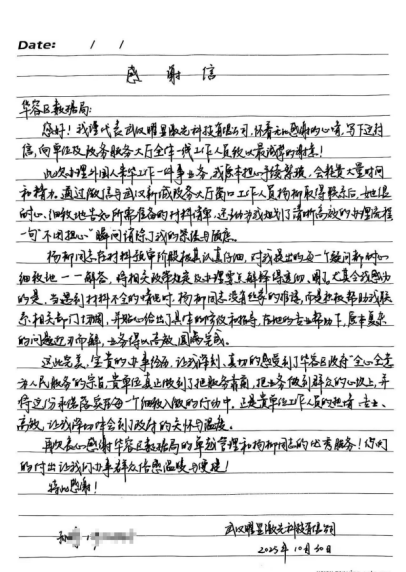 Date: / /
感谢信
华容区数据局:
您好!我谨代表武汉曜星激光科技有限公司,怀着无比感激的心情,写下这封
信,向单位及政务服务大厅全体工作人员致以最诚挚的谢意!
此次办理外国人来华工作一件事业务,我原本担心手续繁琐,会耗费大量时间
和精力。通过微信与武汉新城政务大厅窗口工作人员杨柳取得联系后,她很
耐心、细致地告知所需准备的材料清单,还主动为我规划了清晰高效的办理流程
一句“不用担心”瞬间消除了我的紧张与顾虑。
杨柳同志在材料预审阶段极其认真仔细,对我提出的每一个疑问都耐心
细致地一一解答,将相关政策难点及办理要点解释得透彻、明了。尤其令我感动
的是,当遇到材料不全的情况时,杨柳同志没有丝毫的推诿,而是积极帮助我联
系相关部门协调,并贴心给出了具体的修改和指导,在她的专业帮助下,原本复杂
的问题迎刃而解,业务得以高效、圆满完成。
这此完美、宝贵的办事体验,让我深刻、真切的感受到了华容区政府“全心全意
为人民服务”的宗旨,贵单位真正做到了把服务靠前,把业务做到群众的心坎上,并
将这份承诺落实在每一个细致入微的行动中。正是贵单位工作人员的热情、专业、
高效,让我深切体会到了政府的关怀与温度。
再次衷心感谢华容区数据局的卓越管理和杨柳同志的优秀服务!你们
的付出让我们办事群众倍感温暖与便捷!
特此感谢!
武汉曜星激光科技有限公司
2025年10月30日